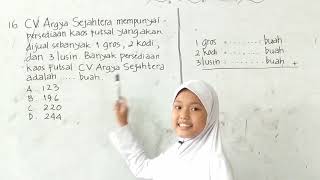 16. CV Argya Sejahtera mempunyai
persediaan kaos futsal yang akan
dijual sebanyak 1 gros, 2 kodi,
dan 3 lusin. Banyak persediaan
kaos futsal CV Argya Sejahtera
adalah .... buah.
A. 123
B. 196
C. 220
D. 244
1 gros = ........... buah
2 kodi = ........... buah
3 lusin = ........... buah
+